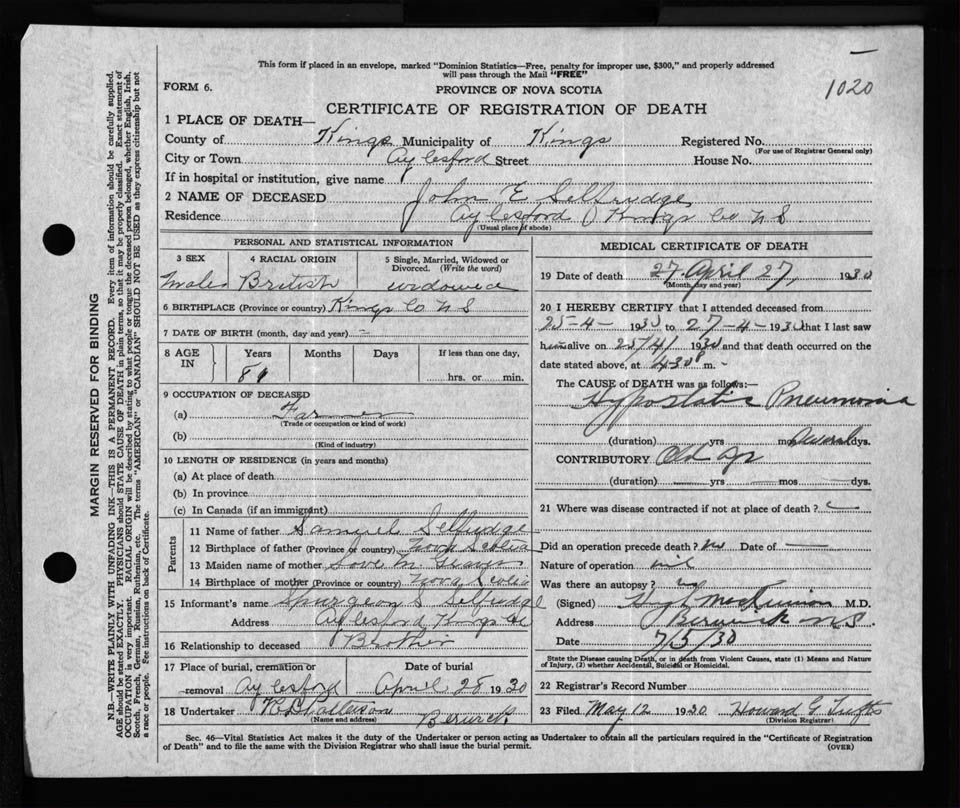 This form if placed in an envelope, marked "Dominion Statistics—Free, penalty for improper use, $300," and properly addressed
will pass through the Mail "FREE"
FORM 6.
PROVINCE OF NOVA SCOTIA
1020
CERTIFICATE OF REGISTRATION OF DEATH
1 PLACE OF DEATH—
County of Kings Municipality of Kings Registered No.
(For use of Registrar General only)
City or Town Aylesford Street House No.
If in hospital or institution, give name
2 NAME OF DECEASED John E Selfridge
Residence Aylesford Kings Co N S
(Usual place of abode)
PERSONAL AND STATISTICAL INFORMATION
3 SEX 4 RACIAL ORIGIN 5 Single, Married, Widowed or
Divorced. (Write the word)
Male British widowed
6 BIRTHPLACE (Province or country) Kings Co N S
7 DATE OF BIRTH (month, day and year) —
8 AGE IN Years Months Days If less than one day,
81 hrs. or min.
9 OCCUPATION OF DECEASED
(a) Farmer
(Trade or occupation or kind of work)
(b)
(Kind of industry)
10 LENGTH OF RESIDENCE (in years and months)
(a) At place of death
(b) In province
(c) In Canada (if an immigrant)
Parents
11 Name of father Samuel Selfridge
12 Birthplace of father (Province or country) Nova Scotia
13 Maiden name of mother
14 Birthplace of mother (Province or country) Nova Scotia
15 Informant's name Spurgeon S Selfridge
Address Aylesford Kings Co
16 Relationship to deceased Brother
17 Place of burial, cremation or Date of burial
removal Aylesford April 28 1930
18 Undertaker Berwick
(Name and address)
MEDICAL CERTIFICATE OF DEATH
19 Date of death 27 April 27, 1930
(Month, day and year)
20 I HEREBY CERTIFY that I attended deceased from
25-4- 1930 to 27-4-1930 that I last saw
him alive on 25/4/ 1930 and that death occurred on the
date stated above, at 430 P m. -
The CAUSE OF DEATH was as follows:—
Hypostatic Pneumonia
(duration) yrs mos Several dys.
CONTRIBUTORY Old Age
(duration) yrs mos dys.
21 Where was disease contracted if not at place of death? —
Did an operation precede death? no Date of —
Nature of operation nil
Was there an autopsy? no
(Signed) Hugh McKinnon M.D.
Address Berwick N.S.
Date 7/5/30
State the Disease causing Death, or in death from Violent Causes, state (1) Means and Nature
of Injury, (2) whether Accidental, Suicidal or Homicidal.
22 Registrar's Record Number
23 Filed May 12 1930 Howard G Tufts
(Division Registrar)
Sec. 46—Vital Statistics Act makes it the duty of the Undertaker or person acting as Undertaker to obtain all the particulars required in the "Certificate of Registration
of Death" and to file the same with the Division Registrar who shall issue the burial permit.
(OVER)
MARGIN RESERVED FOR BINDING
N.B.—WRITE PLAINLY WITH UNFADING INK—THIS IS A PERMANENT RECORD. Every item of information should be carefully supplied.
AGE should be stated EXACTLY. PHYSICIANS should STATE CAUSE OF DEATH in plain terms, so that it may be properly classified. Exact statement of
OCCUPATION is very important. RACIAL ORIGIN will be described by stating to what people or tongue the deceased person belonged, whether English, Irish,
Scotch, French, German, Russian, Ruthenian, etc. The terms "AMERICAN" or "CANADIAN" SHOULD NOT BE USED as they express citizenship but not
a race or people. See instructions on back of Certificate.